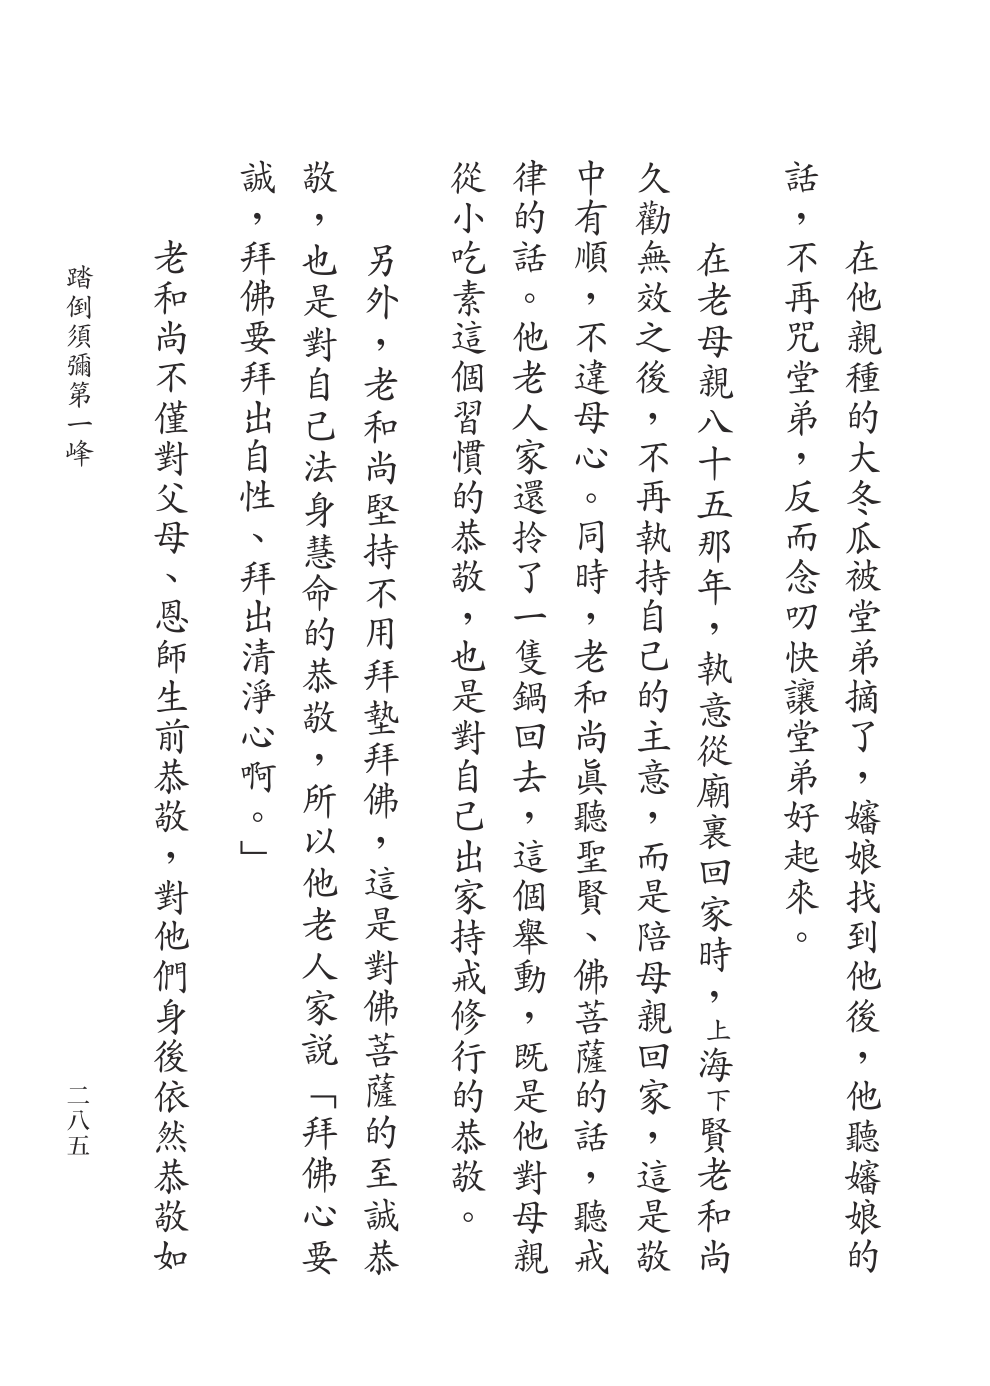 在他親種的大冬瓜被堂弟摘了，嬸娘找到他後，他聽嬸娘的
話，不再咒堂弟，反而念叨快讓堂弟好起來。
在老母親八十五那年，執意從廟裏回家時，上海下賢老和尚
久勸無效之後，不再執持自己的主意，而是陪母親回家，這是敬
中有順，不違母心。同時，老和尚眞聽聖賢、佛菩薩的話，聽戒
律的話。他老人家還拎了一隻鍋回去，這個舉動，既是他對母親
從小吃素這個習慣的恭敬，也是對自己出家持戒修行的恭敬。
另外，老和尚堅持不用拜墊拜佛，這是對佛菩薩的至誠恭
敬，也是對自己法身慧命的恭敬，所以他老人家説「拜佛心要
誠，拜佛要拜出自性、拜出清淨心啊。」
老和尚不僅對父母、恩師生前恭敬，對他們身後依然恭敬如
踏倒須彌第一峰
二八五